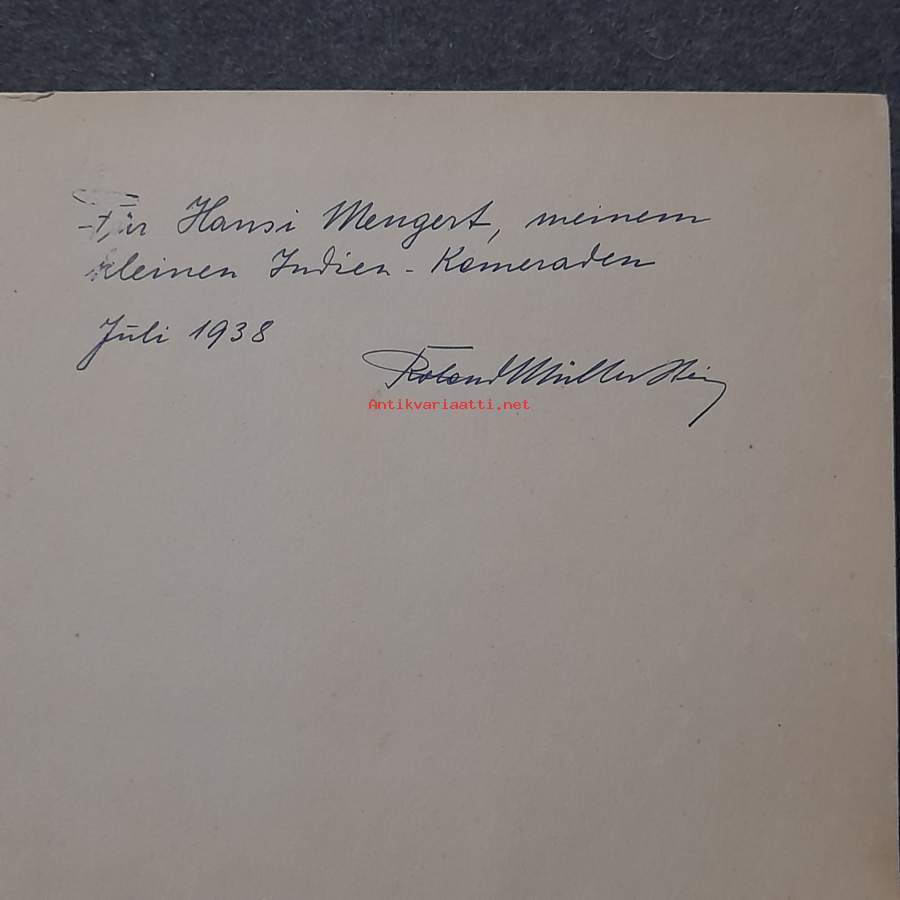 Für Hansi Mengert, meinem
kleinen Indien - Kameraden
Juli 1938
Roland Müller
Antikvariaatti.net